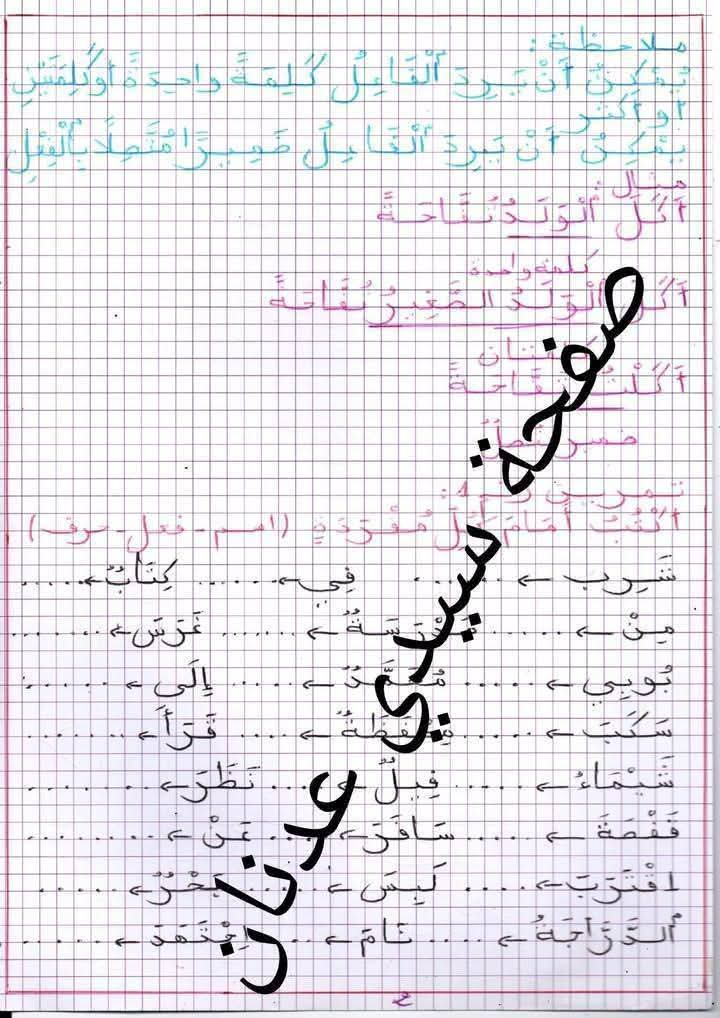 ملاحظة :
يُمْكِنُ أَنْ يَرِدَ ٱلْفَاعِلُ كَلِمَةً وَاحِدَةً أَوْ كَلِمَتَيْنِ
أو أكثر
يُمْكِنُ أَنْ يَرِدَ ٱلْفَاعِلُ ضَمِيرًا مُتَّصِلًا بِٱلْفِعْلِ
مثال :
أَكَلَ ٱلْوَلَدُ تُفَّاحَةً
كلمة واحدة
أَكَلَ ٱلْوَلَدُ الصَّغِيرُ تُفَّاحَةً
كلمتان
أَكَلْتُ تُفَّاحَةً
ضمير متصل
تمرين رقم 1 :
أَكْتُبُ أَمَامَ كُلِّ مُفْرَدَةٍ (اسم - فعل - حرف)
شَرِب ← ...... فِي ← ...... كِتَابٌ ← ......
مِنْ ← ...... مَدْرَسَةٌ ← ...... غَرَسَ ← ......
بُوبِي ← ...... مُحَمَّدٌ ← ...... إِلَى ← ......
سَكَبَ ← ...... مِحْفَظَةٌ ← ...... قَرَأَ ← ......
شَيْمَاءُ ← ...... فِيلٌ ← ...... نَظَرَ ← ......
قَفْصَةَ ← ...... سَافَرَ ← ...... عَنْ ← ......
اقْتَرَبَ ← ...... لَبِسَ ← ...... بَحْرٌ ← ......
ٱلدَّرَّاجَةُ ← ...... نَامَ ← ...... اِجْتَهَدَ ← ......
صفحة سيدي عدنان